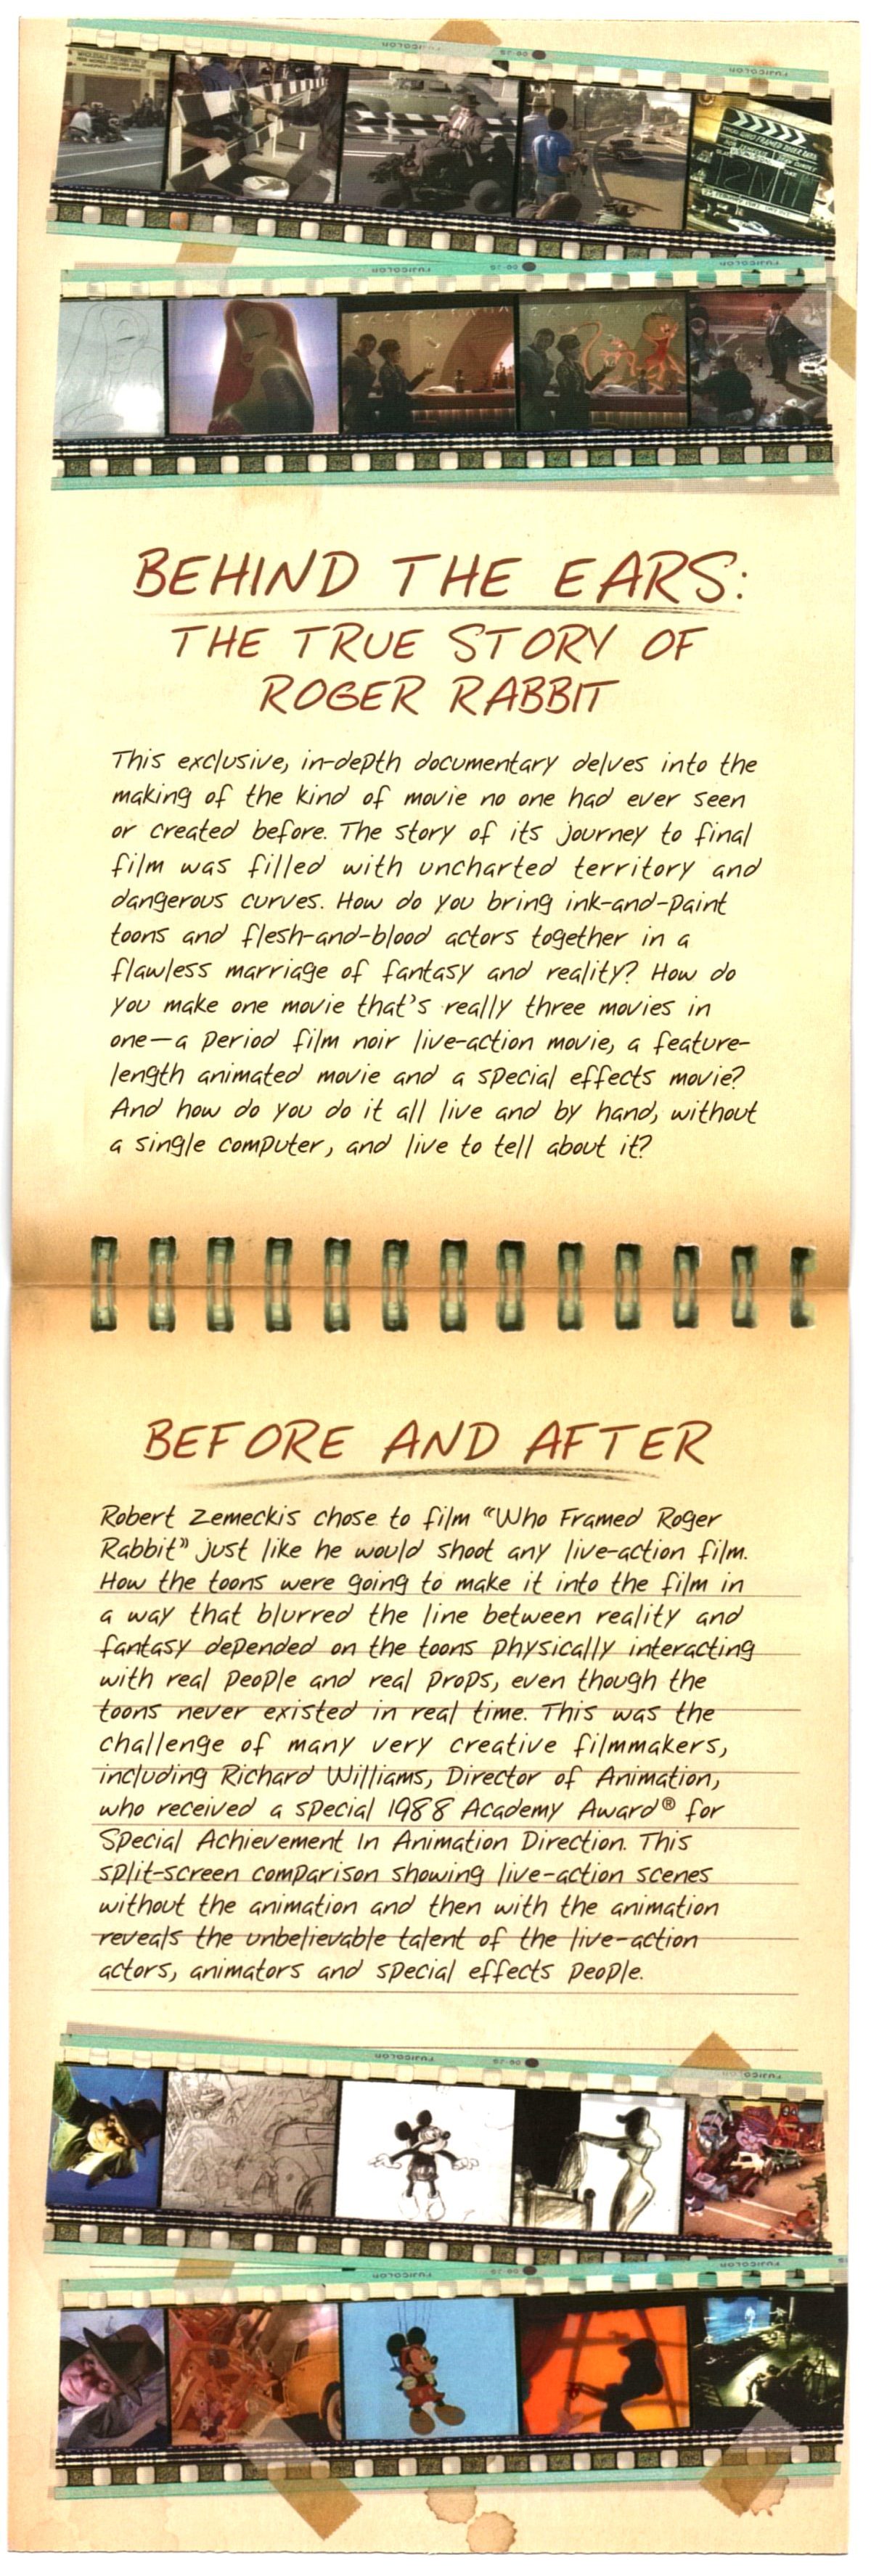 FUJICOLOR
FUJICOLOR
FUJICOLOR
FUJICOLOR
BEHIND THE EARS:
THE TRUE STORY OF
ROGER RABBIT
This exclusive, in-depth documentary delves into the
making of the kind of movie no one had ever seen
or created before. The story of its journey to final
film was filled with uncharted territory and
dangerous curves. How do you bring ink-and-paint
toons and flesh-and-blood actors together in a
flawless marriage of fantasy and reality? How do
you make one movie that's really three movies in
one—a period film noir live-action movie, a feature-
length animated movie and a special effects movie?
And how do you do it all live and by hand, without
a single computer, and live to tell about it?
BEFORE AND AFTER
Robert Zemeckis chose to film “Who Framed Roger
Rabbit” just like he would shoot any live-action film.
How the toons were going to make it into the film in
a way that blurred the line between reality and
fantasy depended on the toons physically interacting
with real people and real props, even though the
toons never existed in real time. This was the
challenge of many very creative filmmakers,
including Richard Williams, Director of Animation,
who received a special 1988 Academy Award® for
Special Achievement In Animation Direction. This
split-screen comparison showing live-action scenes
without the animation and then with the animation
reveals the unbelievable talent of the live-action
actors, animators and special effects people.
FUJICOLOR
FUJICOLOR
FUJICOLOR